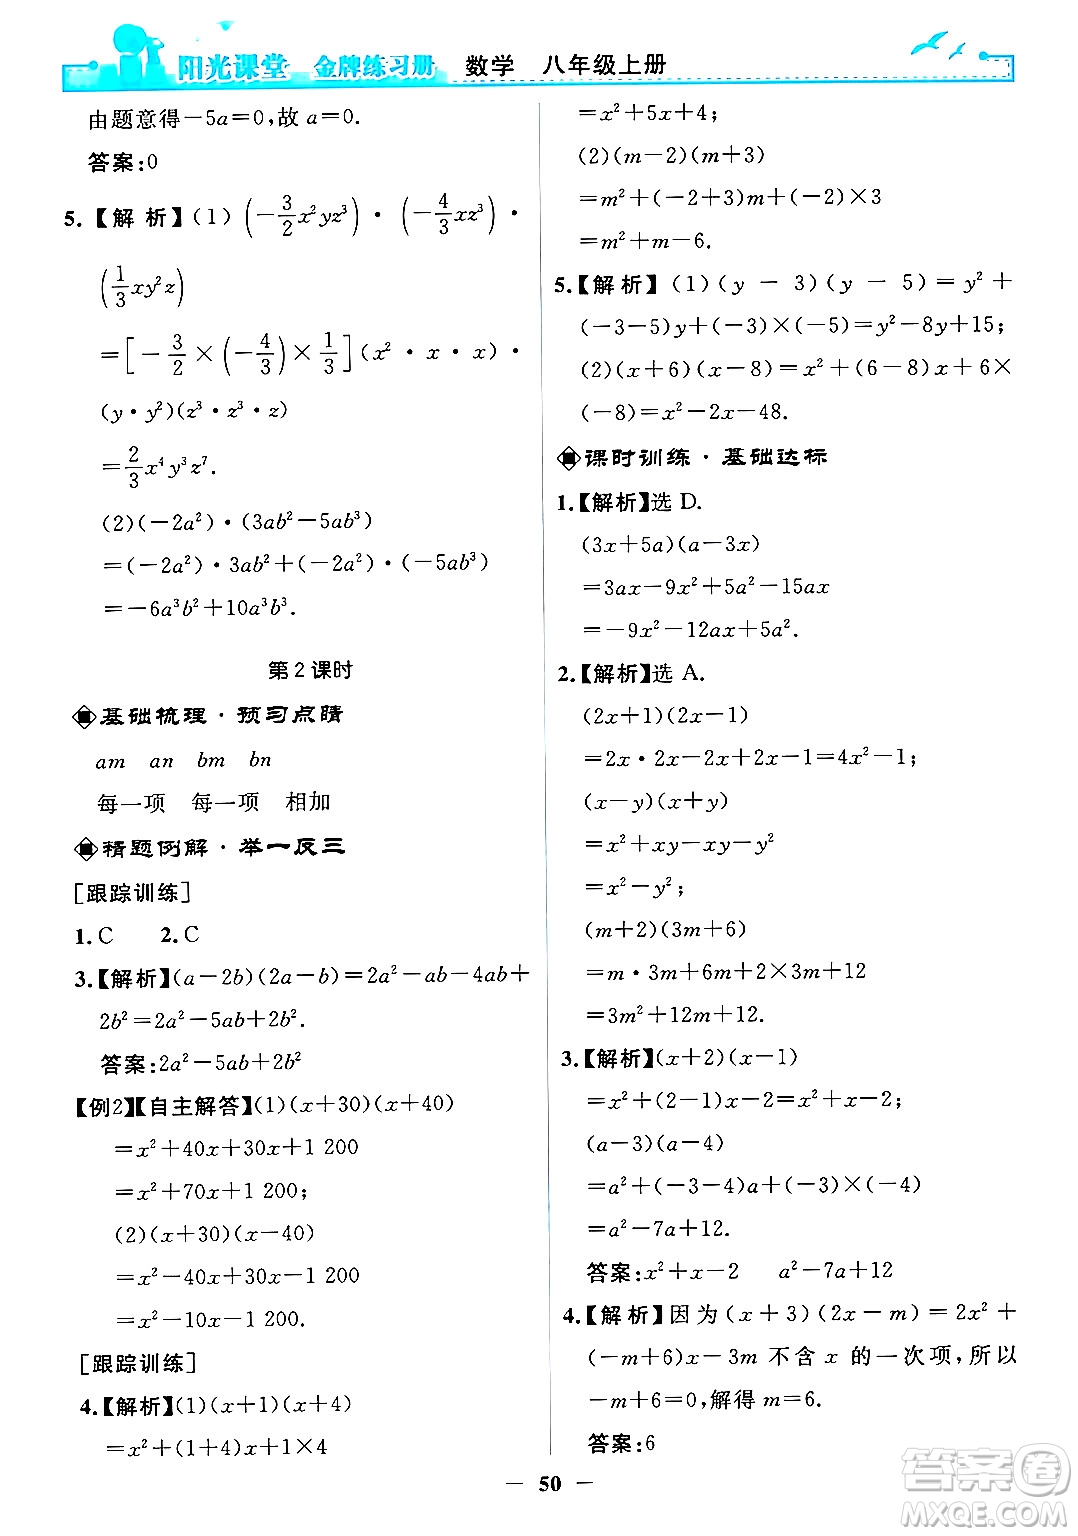 阳光课堂 金牌练习册 数学 八年级上册
由题意得－5a＝0,故 a＝0.
答案:0
5.【解析】(1)(－3/2 x²yz³)·(－4/3 xz³)·
(1/3 xy²z)
＝[－3/2×(－4/3)×1/3](x²·x·x)·
(y·y²)(z³·z³·z)
＝2/3 x⁴y³z⁷.
(2)(－2a²)·(3ab²－5ab³)
＝(－2a²)·3ab²＋(－2a²)·(－5ab³)
＝－6a³b²＋10a³b³.
第2课时
基础梳理·预习点睛
am an bm bn
每一项 每一项 相加
精题例解·举一反三
[跟踪训练]
1.C 2.C
3.【解析】(a－2b)(2a－b)＝2a²－ab－4ab＋
2b²＝2a²－5ab＋2b².
答案:2a²－5ab＋2b²
【例2】【自主解答】(1)(x＋30)(x＋40)
＝x²＋40x＋30x＋1 200
＝x²＋70x＋1 200;
(2)(x＋30)(x－40)
＝x²－40x＋30x－1 200
＝x²－10x－1 200.
[跟踪训练]
4.【解析】(1)(x＋1)(x＋4)
＝x²＋(1＋4)x＋1×4
＝x²＋5x＋4;
(2)(m－2)(m＋3)
＝m²＋(－2＋3)m＋(－2)×3
＝m²＋m－6.
5.【解析】(1)(y－3)(y－5)＝y²＋
(－3－5)y＋(－3)×(－5)＝y²－8y＋15;
(2)(x＋6)(x－8)＝x²＋(6－8)x＋6×
(－8)＝x²－2x－48.
课时训练·基础达标
1.【解析】选 D.
(3x＋5a)(a－3x)
＝3ax－9x²＋5a²－15ax
＝－9x²－12ax＋5a².
2.【解析】选 A.
(2x＋1)(2x－1)
＝2x·2x－2x＋2x－1＝4x²－1;
(x－y)(x＋y)
＝x²＋xy－xy－y²
＝x²－y²;
(m＋2)(3m＋6)
＝m·3m＋6m＋2×3m＋12
＝3m²＋12m＋12.
3.【解析】(x＋2)(x－1)
＝x²＋(2－1)x－2＝x²＋x－2;
(a－3)(a－4)
＝a²＋(－3－4)a＋(－3)×(－4)
＝a²－7a＋12.
答案:x²＋x－2 a²－7a＋12
4.【解析】因为(x＋3)(2x－m)＝2x²＋
(－m＋6)x－3m 不含 x 的一次项,所以
－m＋6＝0,解得 m＝6.
答案:6
50
答案圈
MXQE.COM